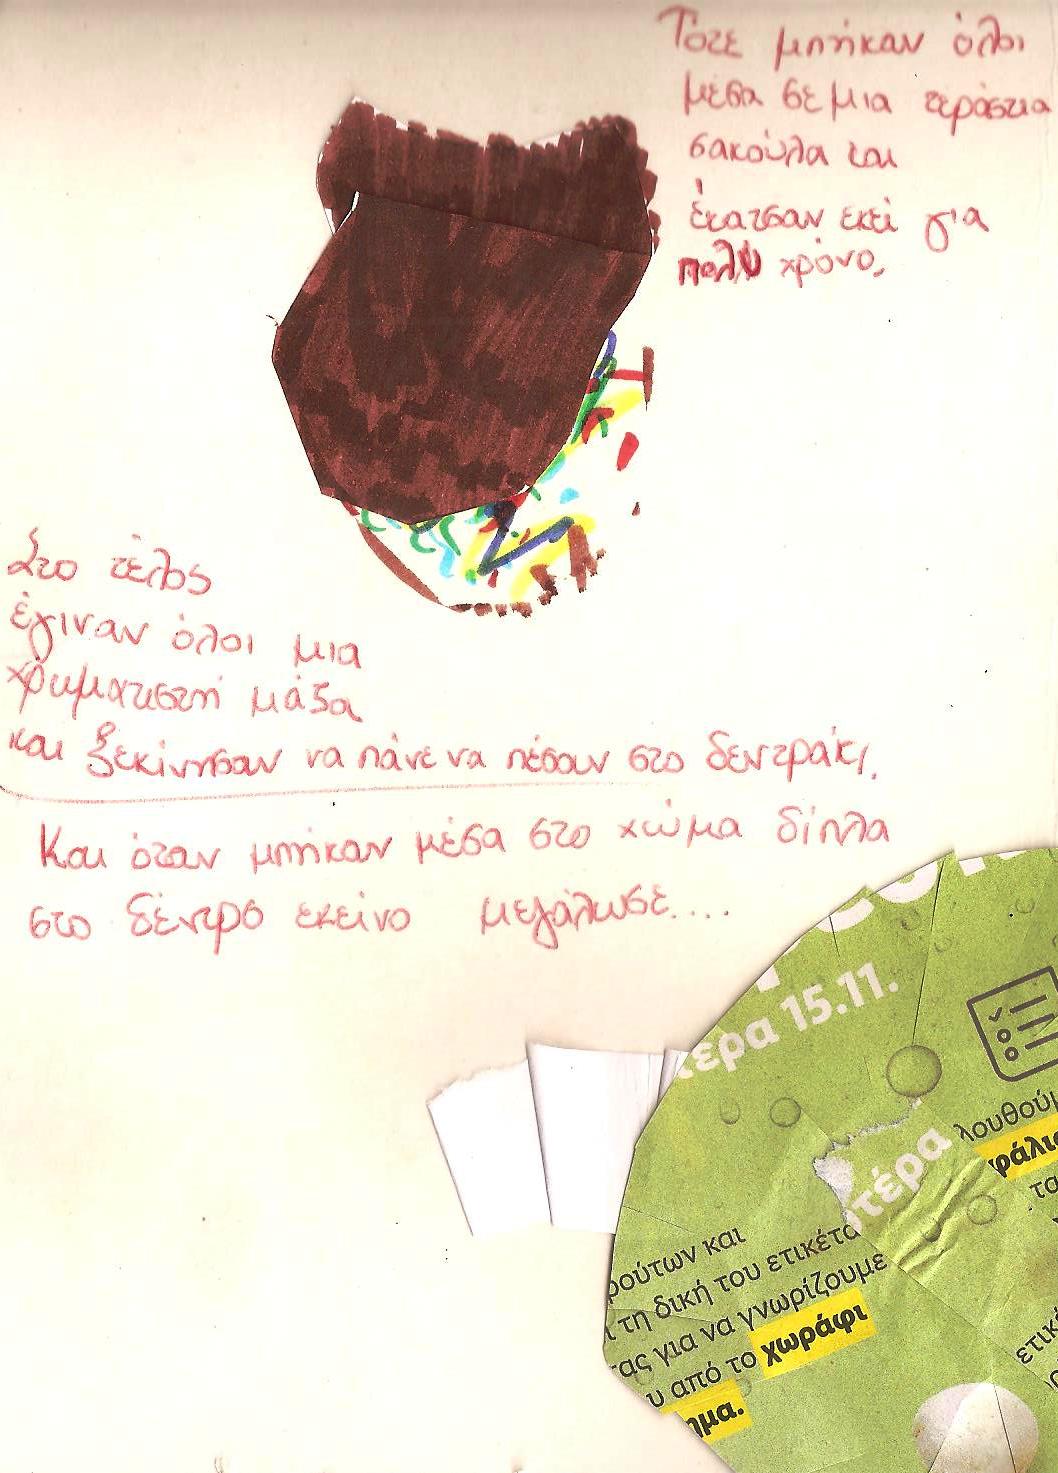 Τότε μπήκαν όλοι
μέσα σε μια τεράστια
σακούλα και
έκατσαν εκεί για
πολύ χρόνο.
Στο τέλος
έγιναν όλοι μια
χρωματιστή μάζα
και ξεκίνησαν να πάνε να πέσουν στο δεντράκι.
Και όταν μπήκαν μέσα στο χώμα δίπλα
στο δέντρο εκείνο μεγάλωσε....
τερα 15.11.
λουθούμ
φάλι
τα
τέρα
ρούτων και
ι τη δική του ετικέτα
τας για να γνωρίζουμε
υ από το χωράφι
ημα.
ετικέ